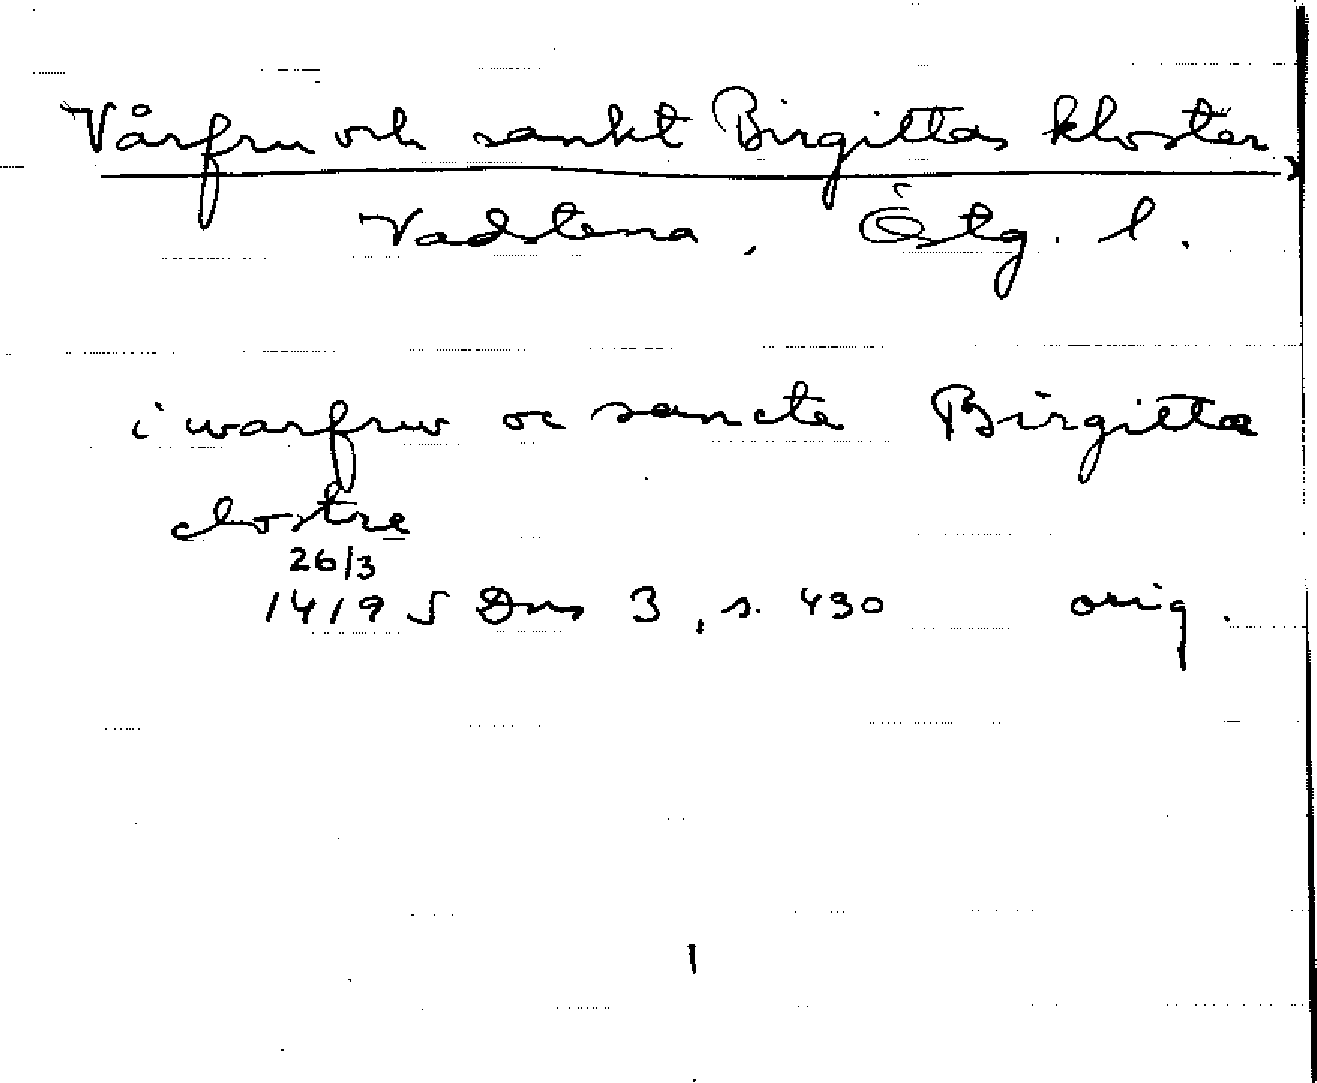 Vårfru och sankt Birgittas kloster
Vadstena, Östg. l.
i warfrw oc sancte Birgitta
clostre
26/3
1419 SDns 3, s. 430 orig.
1